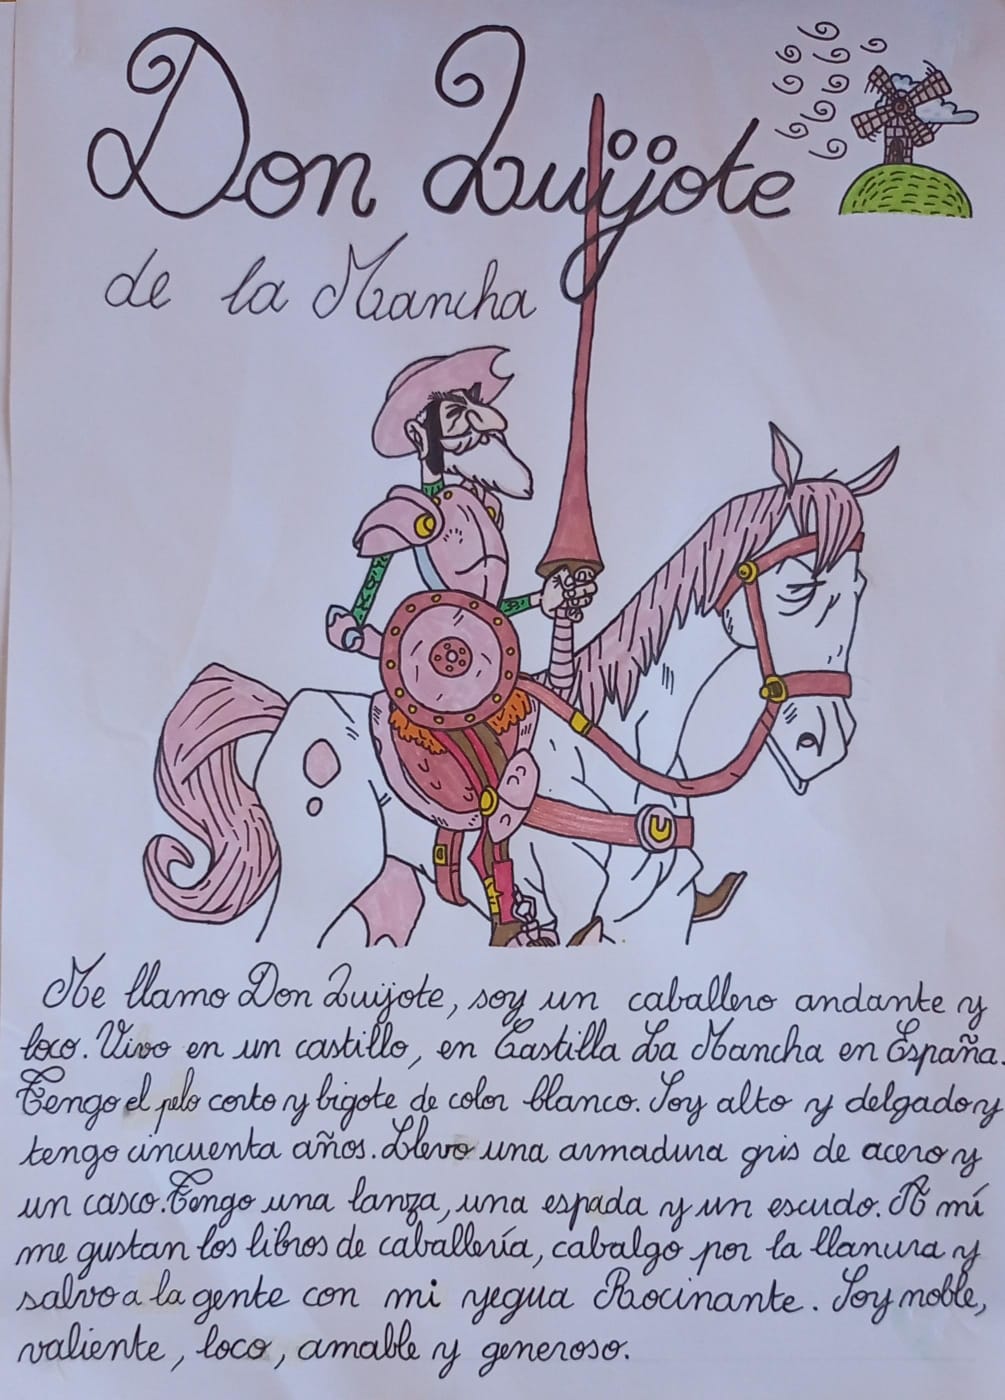 Don Quijote
de la Mancha
Me llamo Don Quijote, soy un caballero andante y
loco. Vivo en un castillo, en Castilla La Mancha en España.
Tengo el pelo corto y bigote de color blanco. Soy alto y delgado y
tengo cincuenta años. Llevo una armadura gris de acero y
un casco. Tengo una lanza, una espada y un escudo. A mí
me gustan los libros de caballería, cabalgo por la llanura y
salvo a la gente con mi yegua Rocinante. Soy noble,
valiente, loco, amable y generoso.